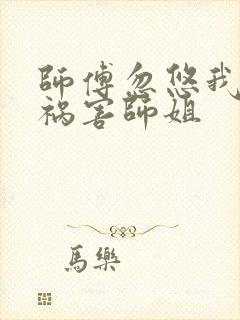 師傅忽悠我
祸害師姐
馬樂